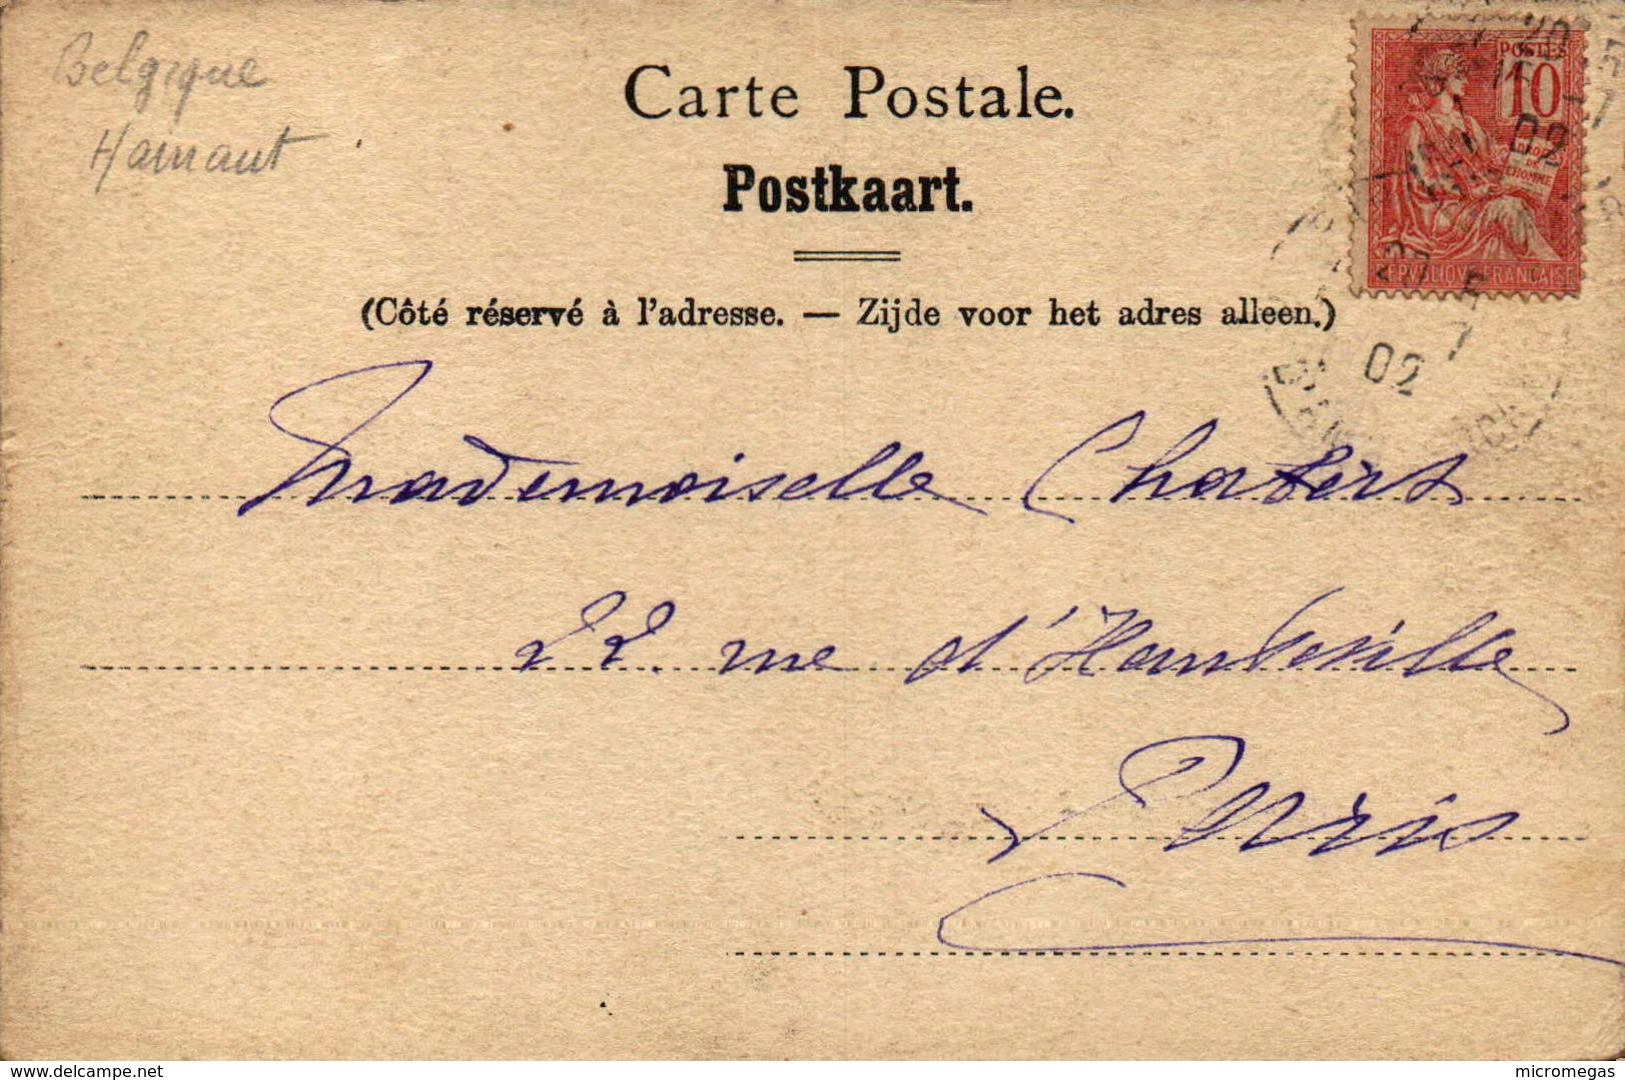 Belgique
Hainaut
Carte Postale.
Postkaart.
(Côté réservé à l'adresse. — Zijde voor het adres alleen.)
POSTES
10
DROITS
DE
L'HOMME
REPVBLIQVE FRANÇAISE
02
20
02
Mademoiselle
22 rue d'Hauteville
Paris
delcampe.net
micromegas